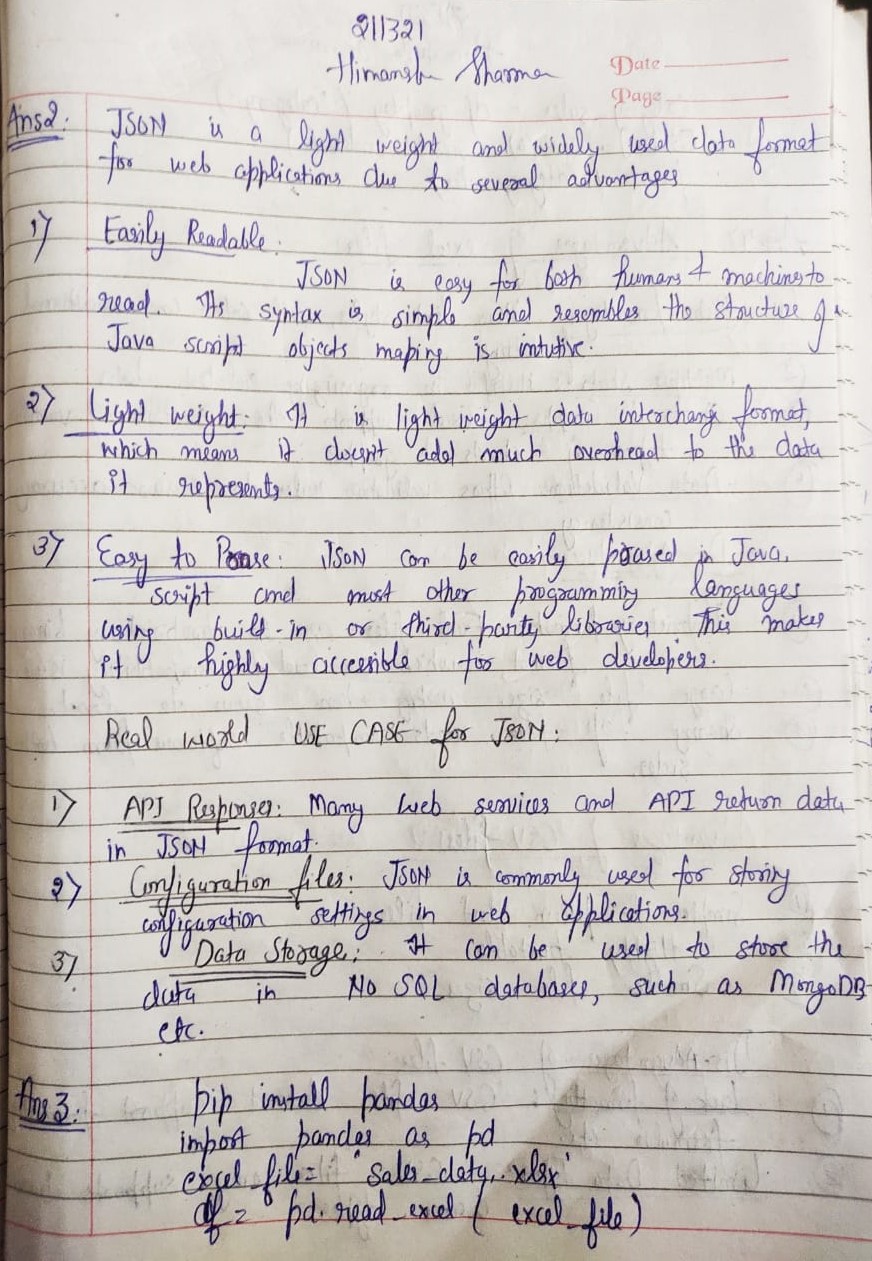 211321
Himansh Sharma
Date
Page
Ans2: JSON is a light weight and widely used data format
for web applications due to several advantages
1) Easily Readable.
JSON is easy for both humans & machines to
read. Its syntax is simple and resembles the structure of
Java script objects maping is intutive.
2) Light weight: It is light weight data interchang format,
which means it doesn't add much overhead to the data
it represents.
3) Easy to Parse: JSON can be easily parased in Java.
script and most other programming languages
using built-in or third-party libraries this makes
it highly accesible for web developers.
Real world USE CASE for JSON:
1) API Responses: Many web services and API return data
in JSON format.
2) Configuration files: JSON is commonly used for storing
configuration settings in web applications.
3) Data Storage: It can be used to store the
data in No SQL databases, such as MongoDB
etc.
Ans 3: pip install pandas
import pandas as pd
excel_file= 'sales_data.xlsx'
df = pd.read_excel ( excel_file)